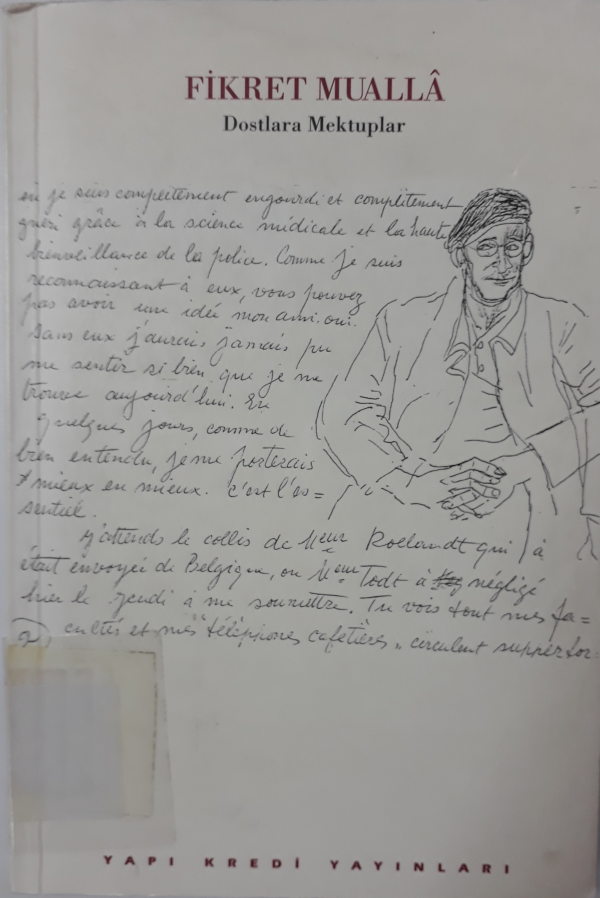 FİKRET MUALLÂ
Dostlara Mektuplar
en je suis complètement engourdi et complètement
guéri grâce à la science médicale et la haute
bienveillance de la police. Comme je suis
reconnaissant à eux, vous pouvez
pas avoir une idée mon ami. oui.
Sans eux j'aurais jamais pu
me sentir si bien que je me
trouve aujourd'hui. En
quelques jours, comme de
bien entendu, je me porterais
mieux en mieux. C'est l'es=
sentiel.
J'attends le collis de Meur Roelandt qui à
était envoyée de Belgique, ou Meur Todt à négligé
hier le jeudi à me soumettre. Tu vois tout mes fa=
cultés et mes "téléphones cafetières" circulent supperfor-
YAPI KREDİ YAYINLARI